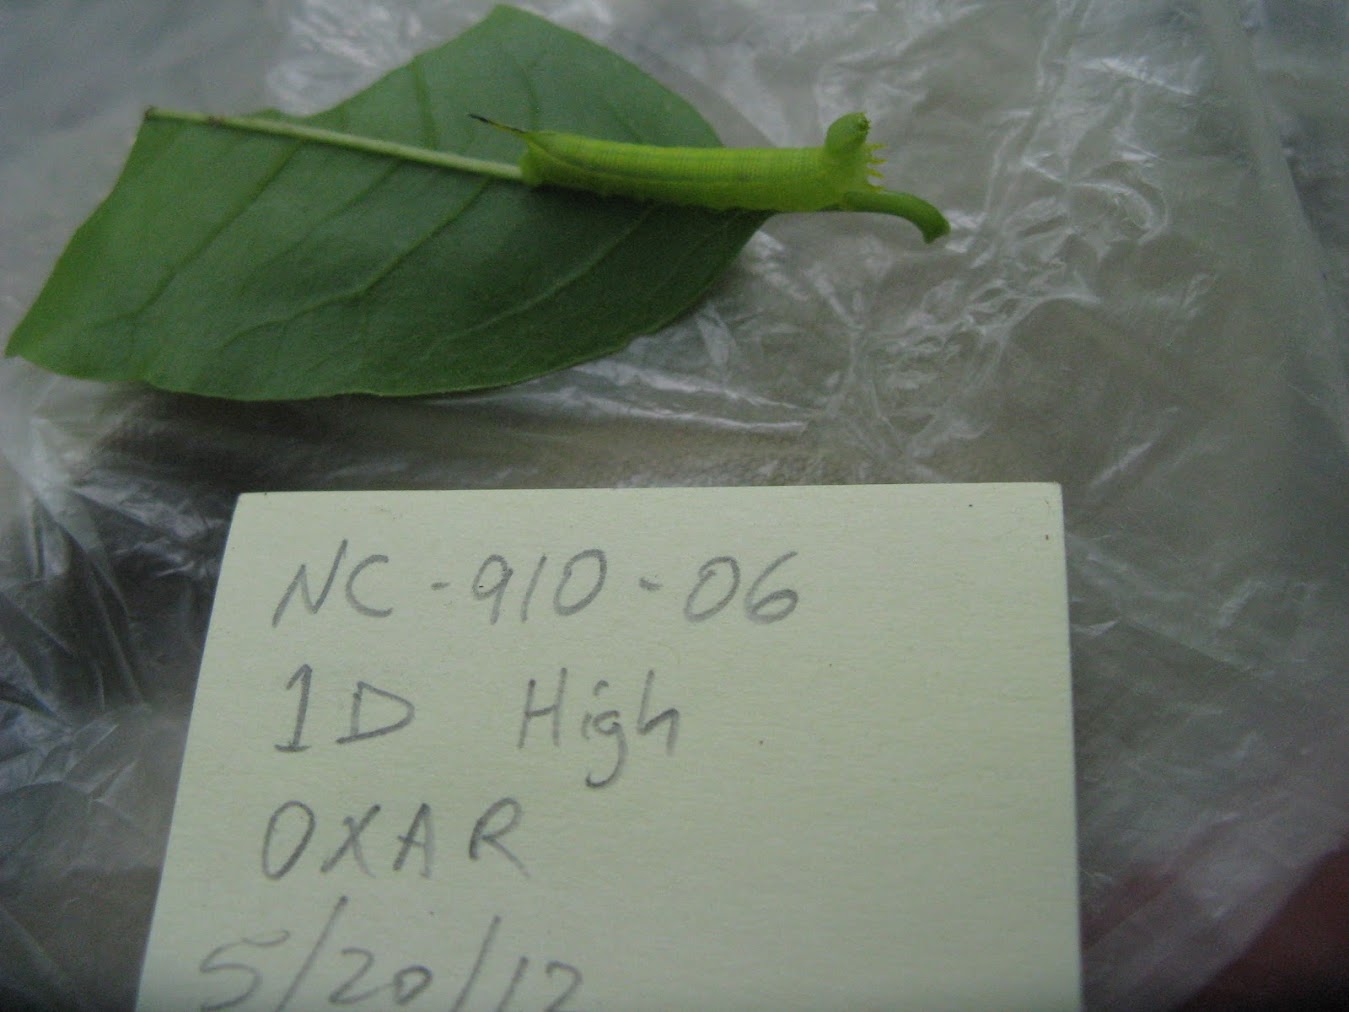 NC-910-06
1D High
OXAR
5/20/12